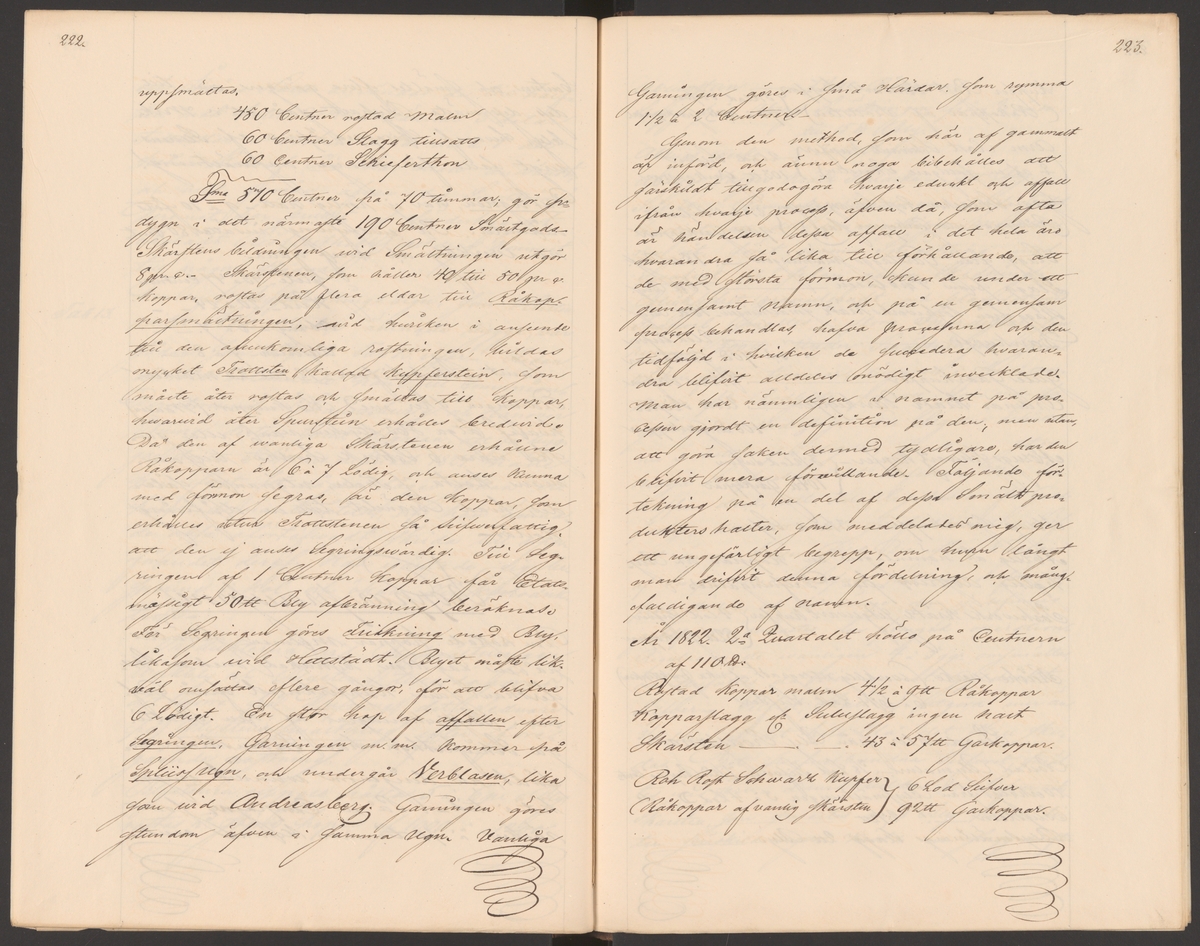 222.
uppsmältas.
480 Centner rostad Malm
60 Centner Slagg tillsatts
60 Centner Schieferthon
Sma 570 Centner på 70 timmar, gör pr
dygn i det närmaste 190 Centner Smältgods
Skärstens bildningen wid Smältningen utgör
8 pr. c. Skärstenen, som håller 40 till 50 pr c
koppar, rostas på flera eldar till Råkop-
parsmältningen, wid hwilken i anseende
till den ofullkomliga rostningen, bildas
mycket Trottsten kallad kupferstein, som
måste åter rostas och smältas till koppar,
hwarwid åter Spurstein erhålles bredwid.
Då den af wanliga Skärstenen erhållne
Råkopparn är 6 à 7 Lödig, och anses kunna
med förmon segras, är den koppar, som
erhålles utur Trottstenen så silfwerfattig,
att den ej anses Segringswärdig. Till Seg-
ringen af 1 Centner koppar får Etats-
mässigt 50 tt Bly afbränning beräknas.
För Segringen göres Friskning med Bly,
likasom wid Hettstädt. Blyet måste lik-
wäl omsättas flere gångor, för att blifva
6 Lödigt. En stor hop af affallen efter
Segringen, Garningen m.m. kommer på
Spleissugn, och undergår Verblasen, lika
som wid Andreasberg. Garningen göres
stundom äfven i samma Ugn. Vanliga
223.
Garningen göres i små Härdar, som rymma
1 1/2 à 2 Centner.
Genom den method, som här af gammalt
är införd, och ännu noga bibehålles att
särskildt tillgodogöra hvarje edukt och affall
ifrån hvarje process, äfven då, som ofta
är händelsen dessa affall i det hela äro
hvarandra så lika till förhållande, att
de med största förmon, kunde under ett
gemensamt namn, och på en gemensam
process behandlas, hafva processerna och den
tidföljd i hvilken de succedera hvaran-
dra blifvit alldeles onödigt invecklade.
Man har nämnligen i namnet på pro-
cessen gjordt en definition på den, men utan
att göra saken dermed tydligare, har den
blifvit mera förwillande. Följande för-
tekning på en del af dessa Smält pro-
dukters halter, som meddelades mig, ger
ett ungefärligt begrepp, om huru långt
man drifvit denna fördelning, och mång-
faldigande af namn.
År 1822. 2a Quartalet hölls på Centnern
af 110 tt:
Rostad koppar malm 4 1/2 à 9 tt Råkoppar
Kopparslagg ingen halt
Skärsten 43 à 57 tt Garkoppar.
Roh Rost Schwarz kupfer } 6 Lod Silfver
(Råkoppar af vanlig skärsten } 92 tt Garkoppar.